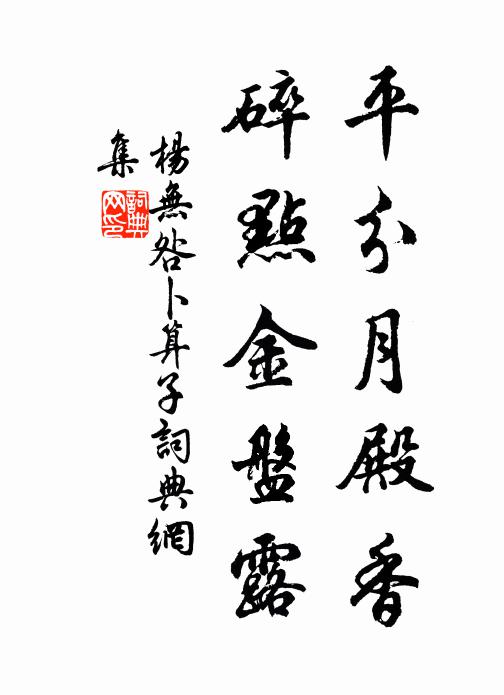 平分月殿香
碎點金盤露
楊無咎卜算子詞典網
集
詞典
网印